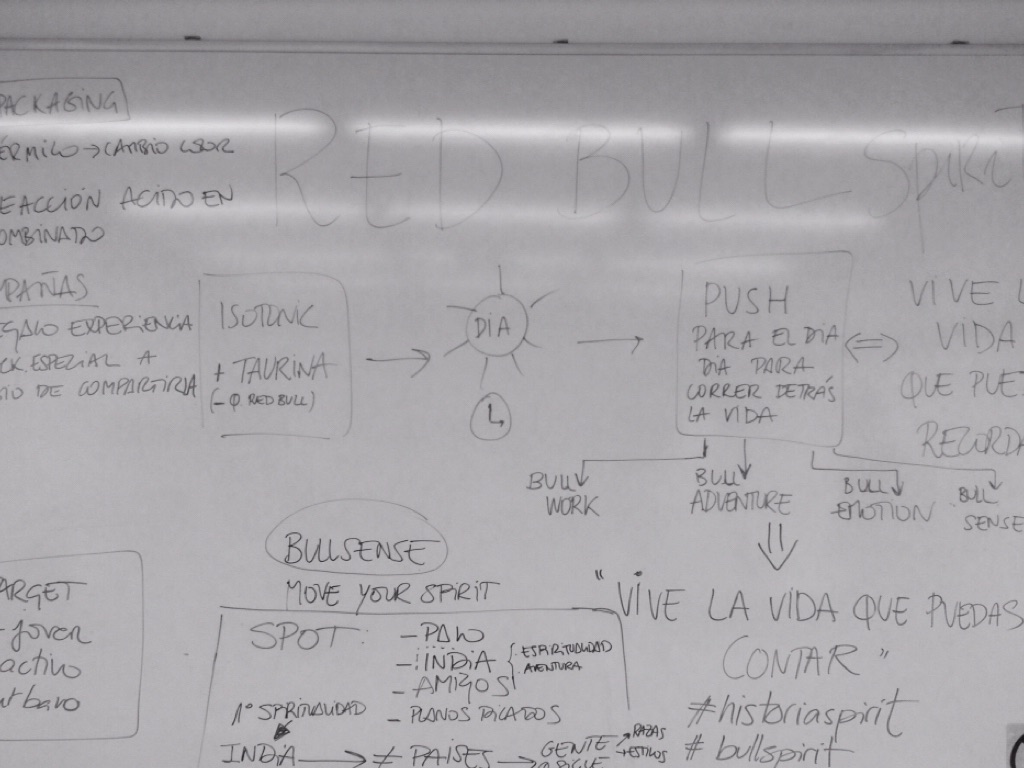 RED BULL Spirit
PACKAGING
ÉRMICO → CAMBIO COLOR
EACCIÓN ACIDO EN
OMBINADO
PAÑAS
EGALO EXPERIENCIA
CK ESPEZIAL A
IO DE COMPARTIRLA
ISOTONIC
+ TAURINA
(- Q RED BULL)
DÍA
PUSH
PARA EL DÍA
DÍA PARA
CORRER DETRÁS
LA VIDA
VIVE L
VIDA
QUE PUE
RECORDA
BULL
WORK
BULL
ADVENTURE
BULL
EMOTION
BULL
SENSE
BULLSENSE
MOVE YOUR SPIRIT
ARGET
- joven
activo
urbano
SPOT:
- INDIA
ESPIRITUALIDAD
AVENTURA
- AMIGOS
- PLANOS PICADOS
1º SPIRITUALIDAD
INDIA → ≠ PAÍSES → GENTE
RAZAS
+ ESTILOS
"VIVE LA VIDA QUE PUEDAS
CONTAR"
#historiaspirit
# bullspirit